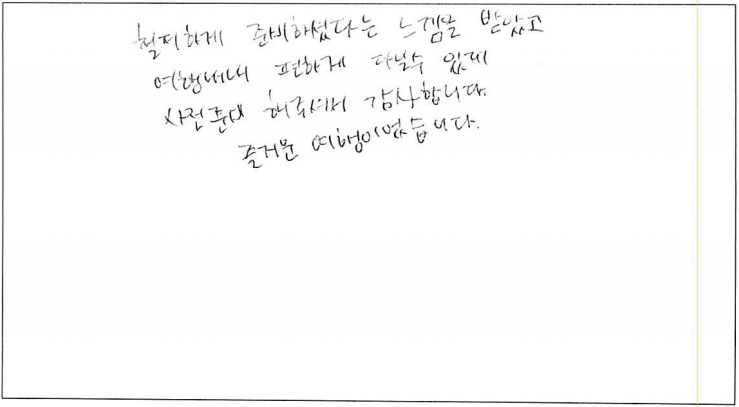 철저하게 준비하셨다는 느낌을 받았고
여행내내 편하게 다닐수 있게
사전준비 해주셔서 감사합니다.
즐거운 여행이었습니다.